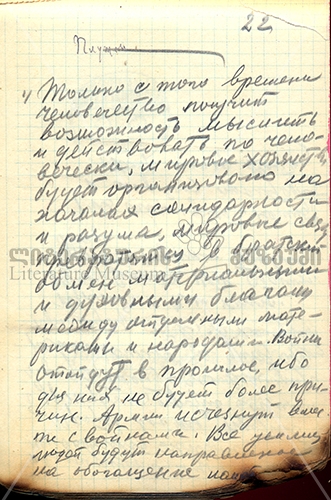 22
1) Только с того времени
человечество получит
возможность мыслить
и действовать по чело-
вечески, мировое хозяйство
будет организовано на
началах солидарности
и разума, мировые связи
превратятся в братский
ლიტერატურის მუზეუმი
Literature Museum
обмен материальными
и духовными благами
между отдельными мате-
риками и народами. Войны
отойдут в прошлое, ибо
для них не будет более при-
чин. Армии исчезнут вмес-
те с войнами. Все усилия
людей будут направлены
на обогащение